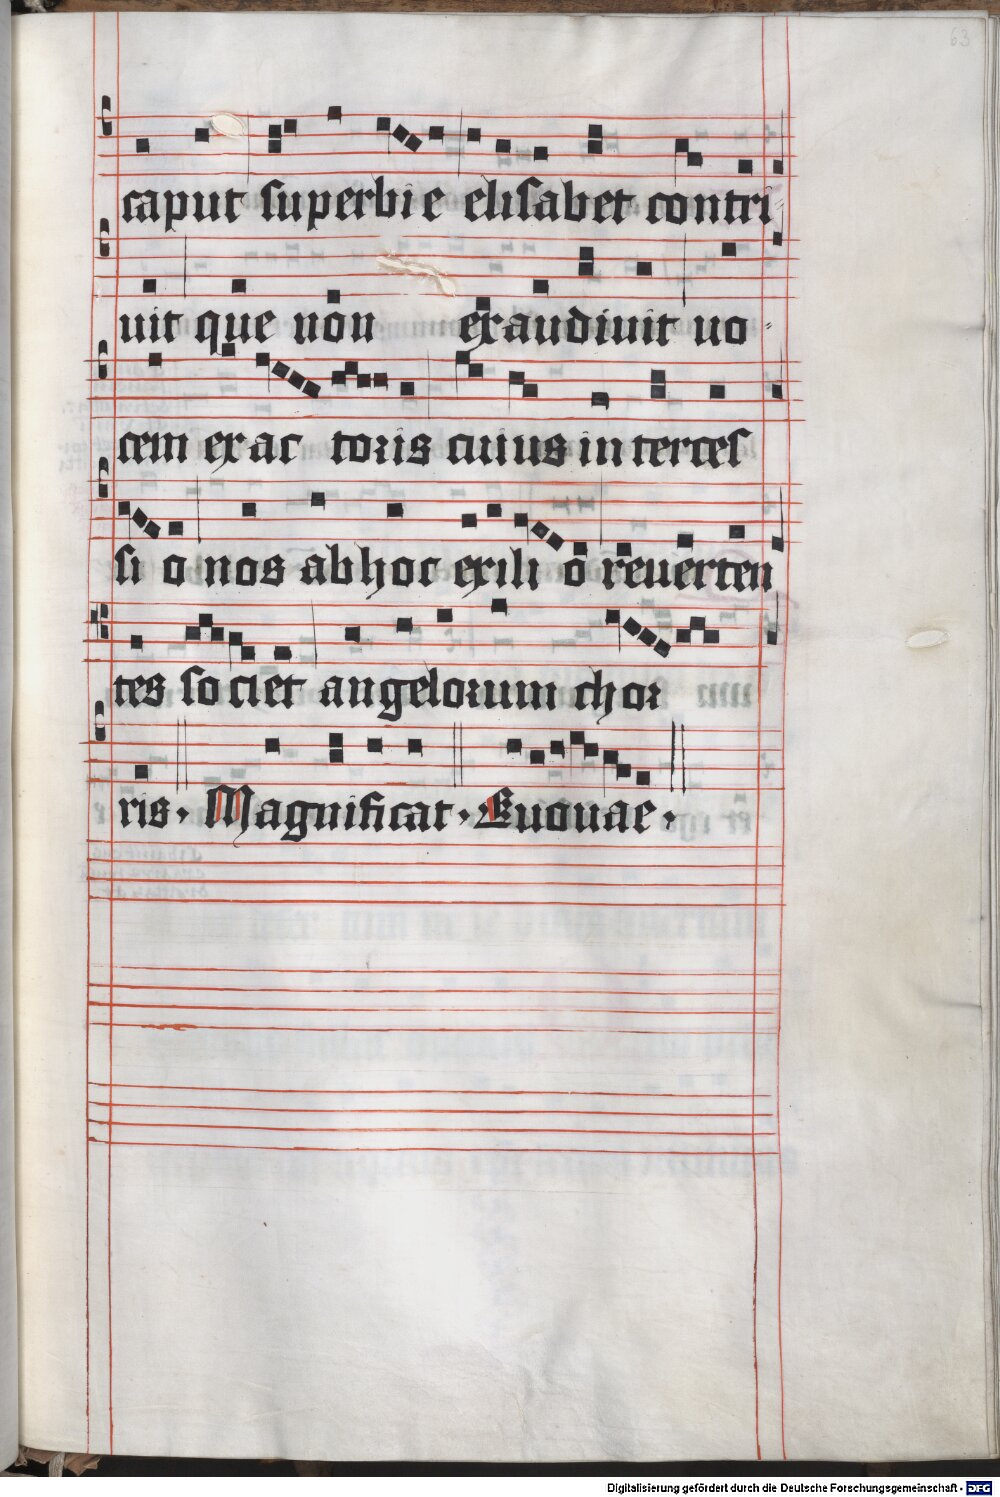 63
caput superbie elisabet contri
uit que non exaudiuit uo
cem ex ac toris cuius in terces
si o nos ab hoc exili o reuerten
tes so ciet angelorum chor
ris. Magnificat. Euouae.
Digitalisierung gefördert durch die Deutsche Forschungsgemeinschaft - DFG